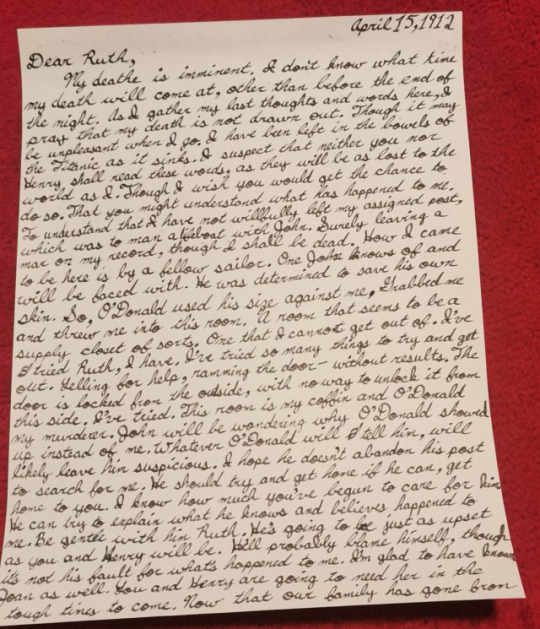 April 15, 1912
Dear Ruth,
My deathe is imminent. I don't know what time
my death will come at, other than before the end of
the night. As I gather my last thoughts and words here, I
pray that my death is not drawn out. Though it may
be unpleasant when I go. I have been left in the bowels of
the Titanic as it sinks. I suspect that neither you nor
Henry, shall read these words, as they will be as lost to the
world as I. Though I wish you would get the chance to
do so. That you might understand what has happened to me.
To understand that I have not willfully left my assigned post,
which was to man a lifeboat with John. Surely leaving a
mar on my record, though I shall be dead. How I came
to be here is by a fellow sailor. One John knows of and
will be faced with. He was determined to save his own
skin. So, O'Donald used his size against me, Grabbed me
and threw me into this room. A room that seems to be a
supply closet of sorts. One that I cannot get out of. I've
tried Ruth, I have. I've tried so many things to try and get
out. Yelling for help, ramming the door - without results. The
door is locked from the outside, with no way to unlock it from
this side, I've tried. This room is my coffin and O'Donald
my murderer. John will be wondering why O'Donald showed
up instead of me. Whatever O'Donald will tell him, will
likely leave him suspicious. I hope he doesn't abandon his post
to search for me. He should try and get home if he can, get
home to you. I know how much you've begun to care for him.
He can try to explain what he knows and believes happened to
me. Be gentle with him Ruth. He's going to be just as upset
as you and Henry will be. He'll probably blame himself, though
it's not his fault for what's happened to me. I'm glad to have known
Joan as well. You and Henry are going to need her in the
tough times to come. Now that our family has gone from